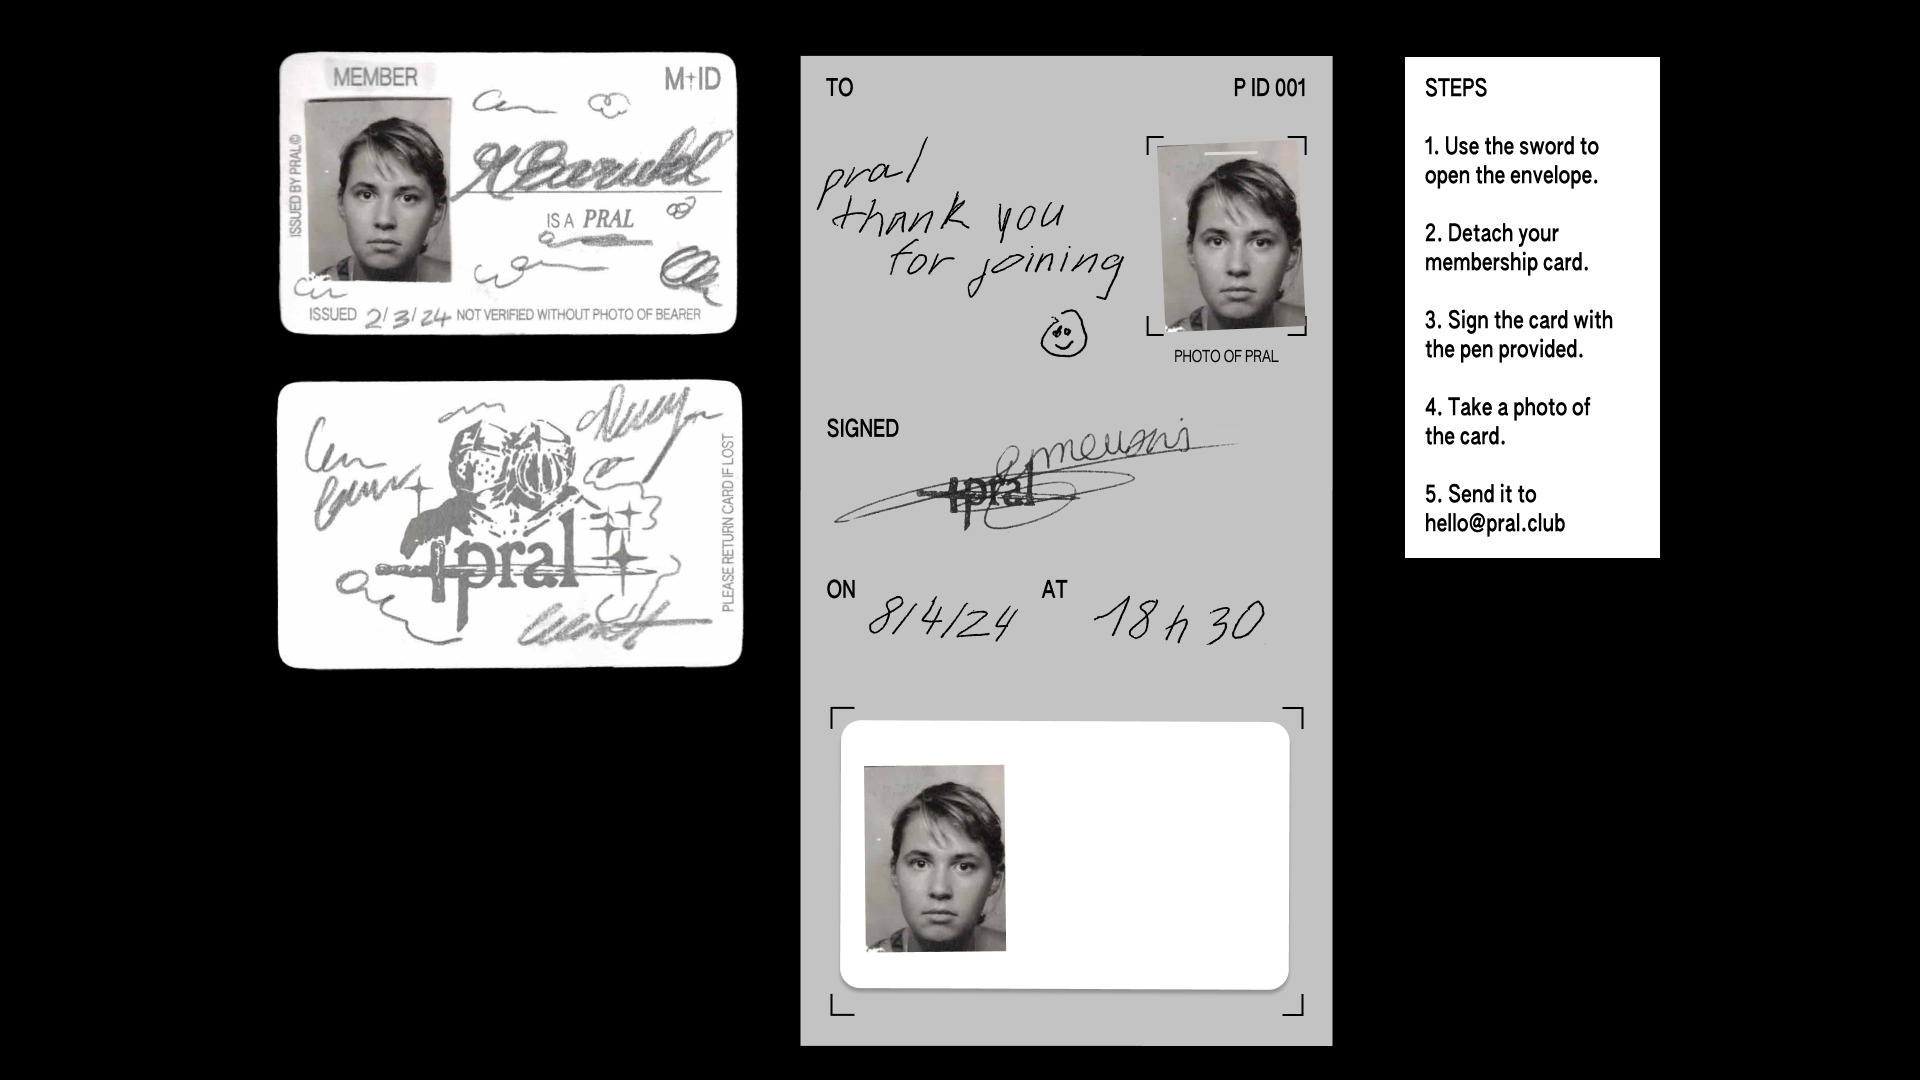 MEMBER
M†ID
ISSUED BY PRAL©
IS A PRAL
ISSUED 2/3/24 NOT VERIFIED WITHOUT PHOTO OF BEARER
pral
PLEASE RETURN CARD IF LOST
TO
P ID 001
pral
thank you
for joining
PHOTO OF PRAL
SIGNED
pral
ON 8/4/24 AT 18h30
STEPS
1. Use the sword to
open the envelope.
2. Detach your
membership card.
3. Sign the card with
the pen provided.
4. Take a photo of
the card.
5. Send it to
hello@pral.club